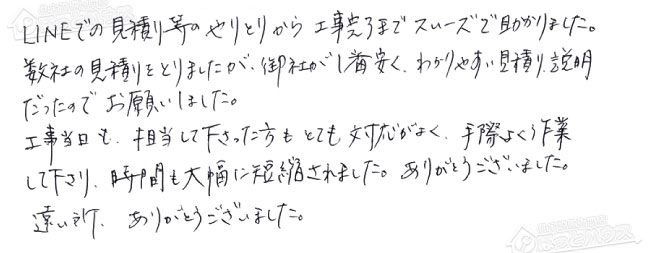 LINEでの見積り等のやりとりから工事完了までスムーズで助かりました。
数社の見積りをとりましたが、御社が1番安く、わかりやすい見積り、説明
だったのでお願いしました。
工事当日も、担当して下さった方もとても対応がよく、手際よく作業
して下さり、時間も大幅に短縮されました。ありがとうございました。
遠い所、ありがとうございました。